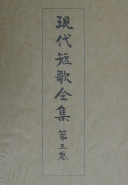 現代短歌全集第三卷